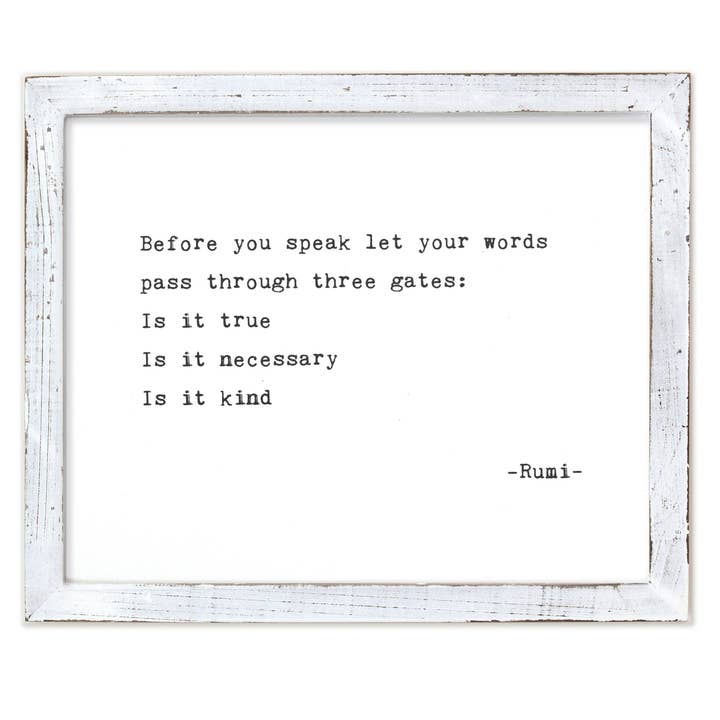 Before you speak let your words
pass through three gates:
Is it true
Is it necessary
Is it kind
-Rumi-